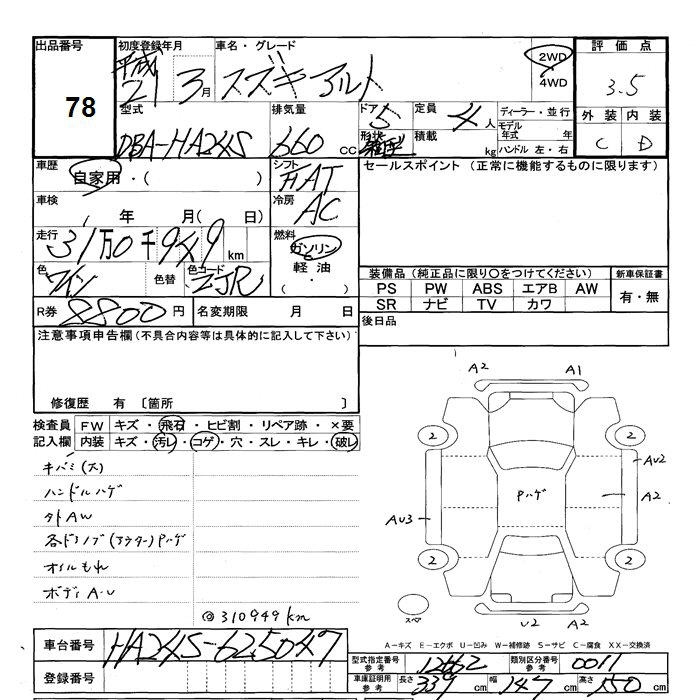 出品番号 初度登録年月 車名・グレード 2WD 4WD 評価点
78 平成 21 3月 スズキ アルト 3.5
型式 排気量 ドア 5 定員 4人 ディーラー・並行 外装 内装
DBA-HA24S 660cc 形状 積載 kg モデル年式 年 C D
ハンドル 左・右
車歴 自家用・( ) シフト FAT セールスポイント (正常に機能するものに限ります)
車検 年 月( 日) 冷房 AC
走行 31万0千949km 燃料 ガソリン 軽油 ( ・ )
色 ワイン 色替 色コード ZJR 装備品 (純正品に限り○をつけてください) 新車保証書
PS PW ABS エアB AW 有・無
SR ナビ TV カワ
R券 8800円 名変期限 月 日 後日品
注意事項申告欄(不具合内容等は具体的に記入して下さい)
修復歴 有 〔箇所 〕
検査員 FW キズ・飛石・ヒビ割・リペア跡・×要
記入欄 内装 キズ・汚レ・コゲ・穴・スレ・キレ・破レ
キバミ(大)
ハンドルハゲ
外AW
各ドアノブ(アウター)Pハゲ
オイルもれ
ボディA・U
@310949km
A2 A1
2 2
AU2
Pハゲ A2
AU3
2 2
スペア U2 A2
A-キズ E-エクボ U-凹み W-補修跡 S-サビ C-腐食 XX-交換済
車台番号 HA24S-625047 型式指定番号 参考 12662 類別区分番号 参考 0011
登録番号 車庫証明用 参考 長さ 339cm 幅 147cm 高さ 150cm